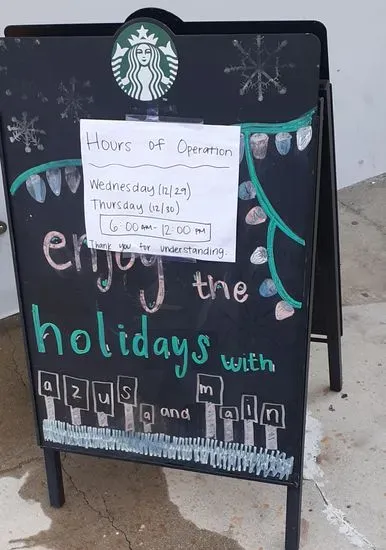 Hours of Operation
Wednesday (12/29)
Thursday (12/30)
6:00 AM - 12:00 PM
Thank you for understanding.
enjoy
the
holidays with
azusa and main